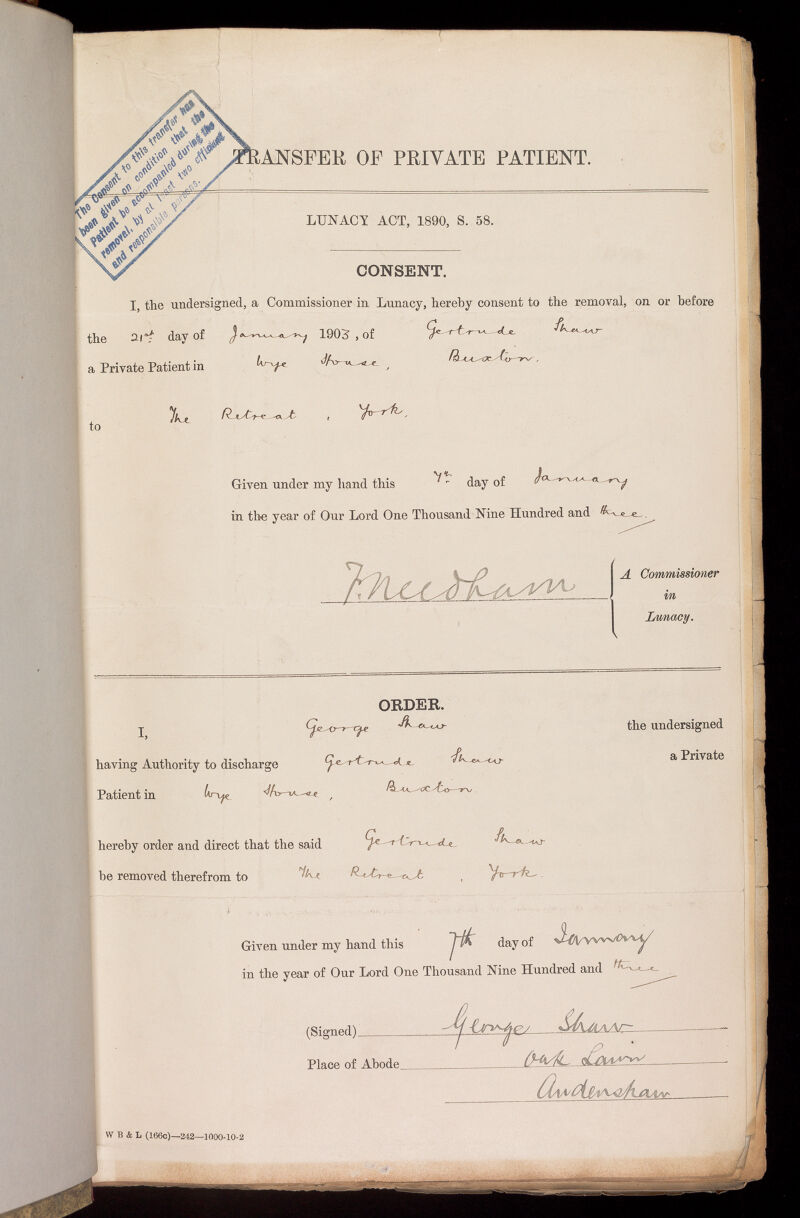 The Consent to this transfer has
been given on condition that the
Patient be accompanied during the
removal, by at least two efficient
and responsible persons.
TRANSFER OF PRIVATE PATIENT.
LUNACY ACT, 1890, S. 58.
CONSENT.
I, the undersigned, a Commissioner in Lunacy, hereby consent to the removal, on or before
the 21st day of January 1903, of Gertrude Shaw
a Private Patient in Wye House, Buxton.
to The Retreat, York.
Given under my hand this 7th day of January
in the year of Our Lord One Thousand Nine Hundred and three.
F. Needham
A Commissioner
in
Lunacy.
ORDER.
I, George Shaw the undersigned
having Authority to discharge Gertrude Shaw a Private
Patient in Wye House, Buxton
hereby order and direct that the said Gertrude Shaw
be removed therefrom to The Retreat, York.
Given under my hand this 7th day of January
in the year of Our Lord One Thousand Nine Hundred and three
(Signed) George Shaw
Place of Abode Oak Lawn
Audenshaw
W B & L (166c)—242—1000-10-2